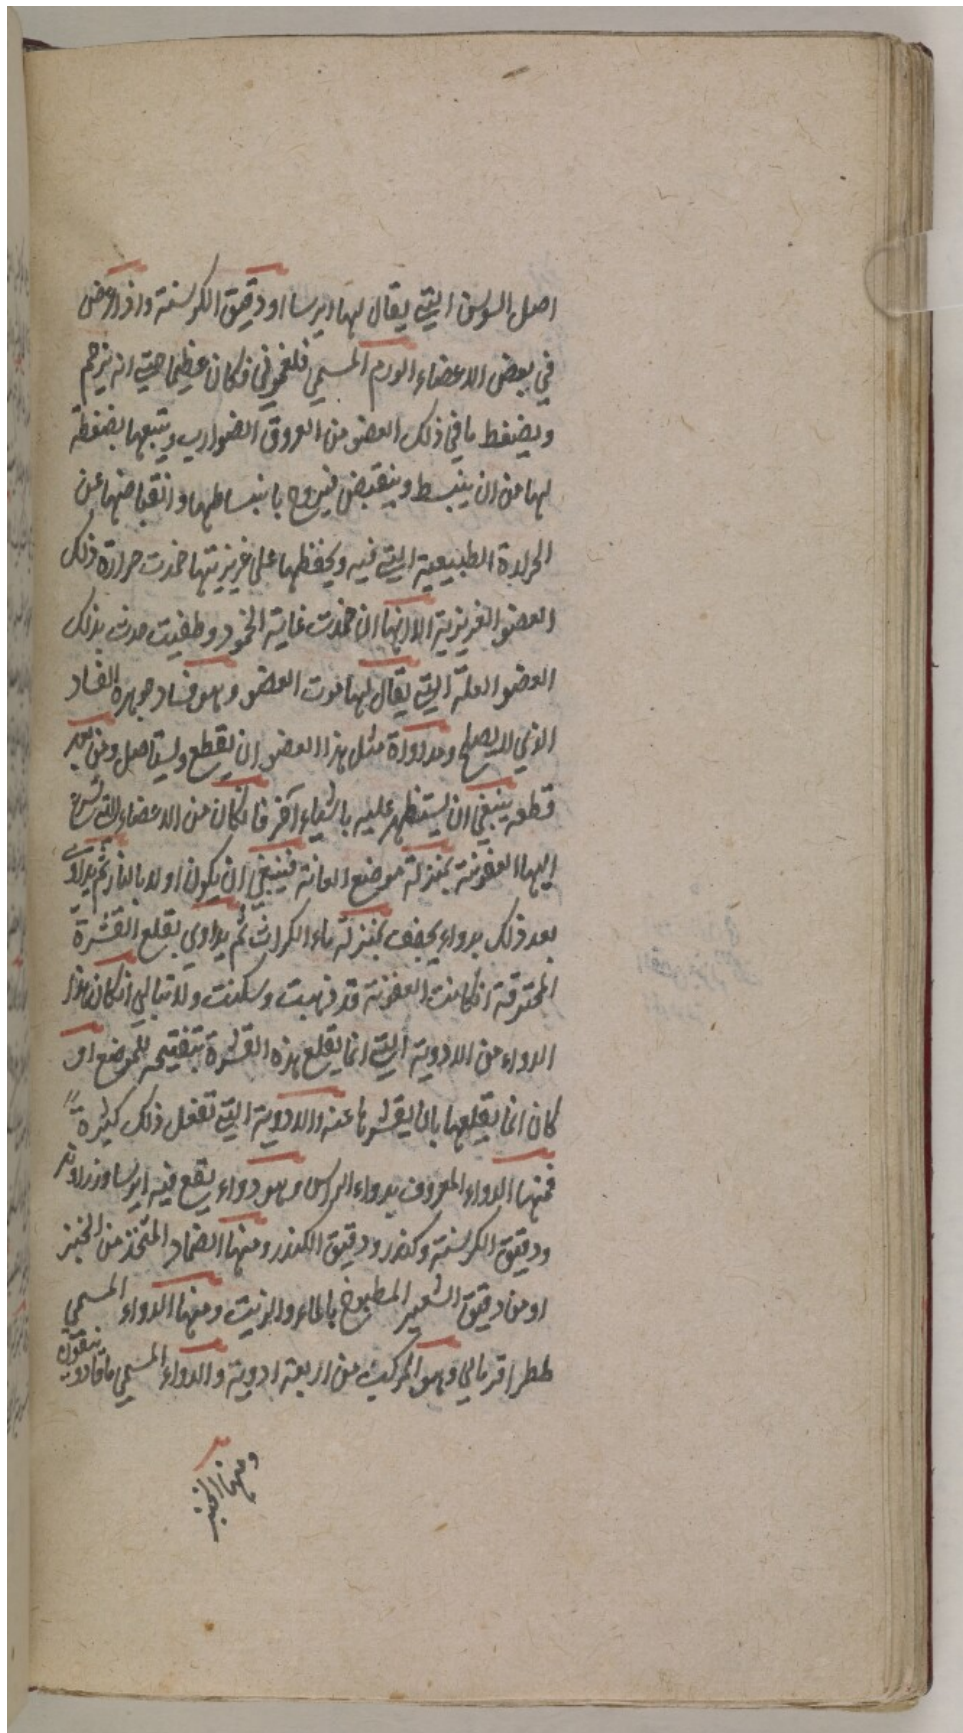 اصل السوسن التي يقال لها ايرسا او دقيق الكرسنة واذا عرض
في بعض الاعضاء الورم المسمي فلغموني فكان عظيما حتي انه يزحم
ويضغط ما في ذلك العضو من العروق الضوارب ويتبعها بضغطه
لها من ان ينبسط وينقبض فيروح بانبساطها وانقباضها عن
الحرارة الطبيعية التي فيه ويحفظها علي غريزيتها خمدت حرارة ذلك
العضو الغريزية الا انها ان خمدت غاية الخمود وطفيت حدث بذلك
العضو العلة التي يقال لها موت العضو وهو فساد جوهره الفساد
الذي لا يصلح ومداواة مثل هذا العضو ان يقطع ويستاصل ومن بعد
قطعه ينبغي ان يستظهر عليه باشياء آخر فان كان من الاعضاء التي تسرع
اليها العفونة بمنزلة موضع العانة فينبغي ان يكون اولا بالنار ثم يداوي
بعد ذلك بدواء يجفف بمنزلة ماء الكراث ثم يداوي بقلع القشرة
المحترقة ان كانت العفونة قد ذهبت وسكنت ولا تبالي ان كان هذا
الدواء من الادوية التي انما يقلع هذه القشرة بتفتيحه للموضع او
كان انما يقلعها بانه يقشرها عنه والادوية التي تفعل ذلك كثيرة
فمنها الدواء المعروف بدواء الراس وهو دواء يقع فيه ايرسا وزراوند
ودقيق الكرسنة وكندر ودقيق الكندر ومنها الضماد المتخذ من الخبز
او من دقيق الشعير المطبوخ بالماء والزيت ومنها الدواء المسمي
ططرافرمالي وهو المركب من اربعة ادوية والدواء المسمي ماقادونيقون
ومنها الخبز